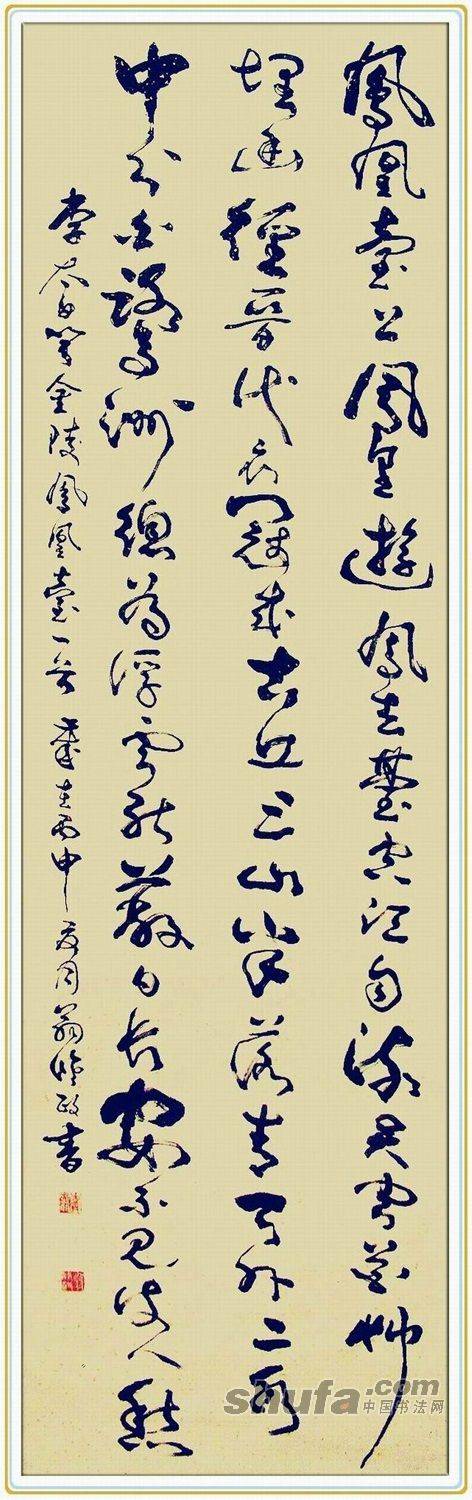 鳳凰臺上鳳皇遊鳳去臺空江自流吳宮花艸
埋幽徑晉代衣冠成古丘三山半落青天外二水
中分白鷺洲總為浮雲能蔽日長安不見使人愁
李太白登金陵鳳凰臺一首 歲在丙申夏月翁政書
shufa.com
中国书法网